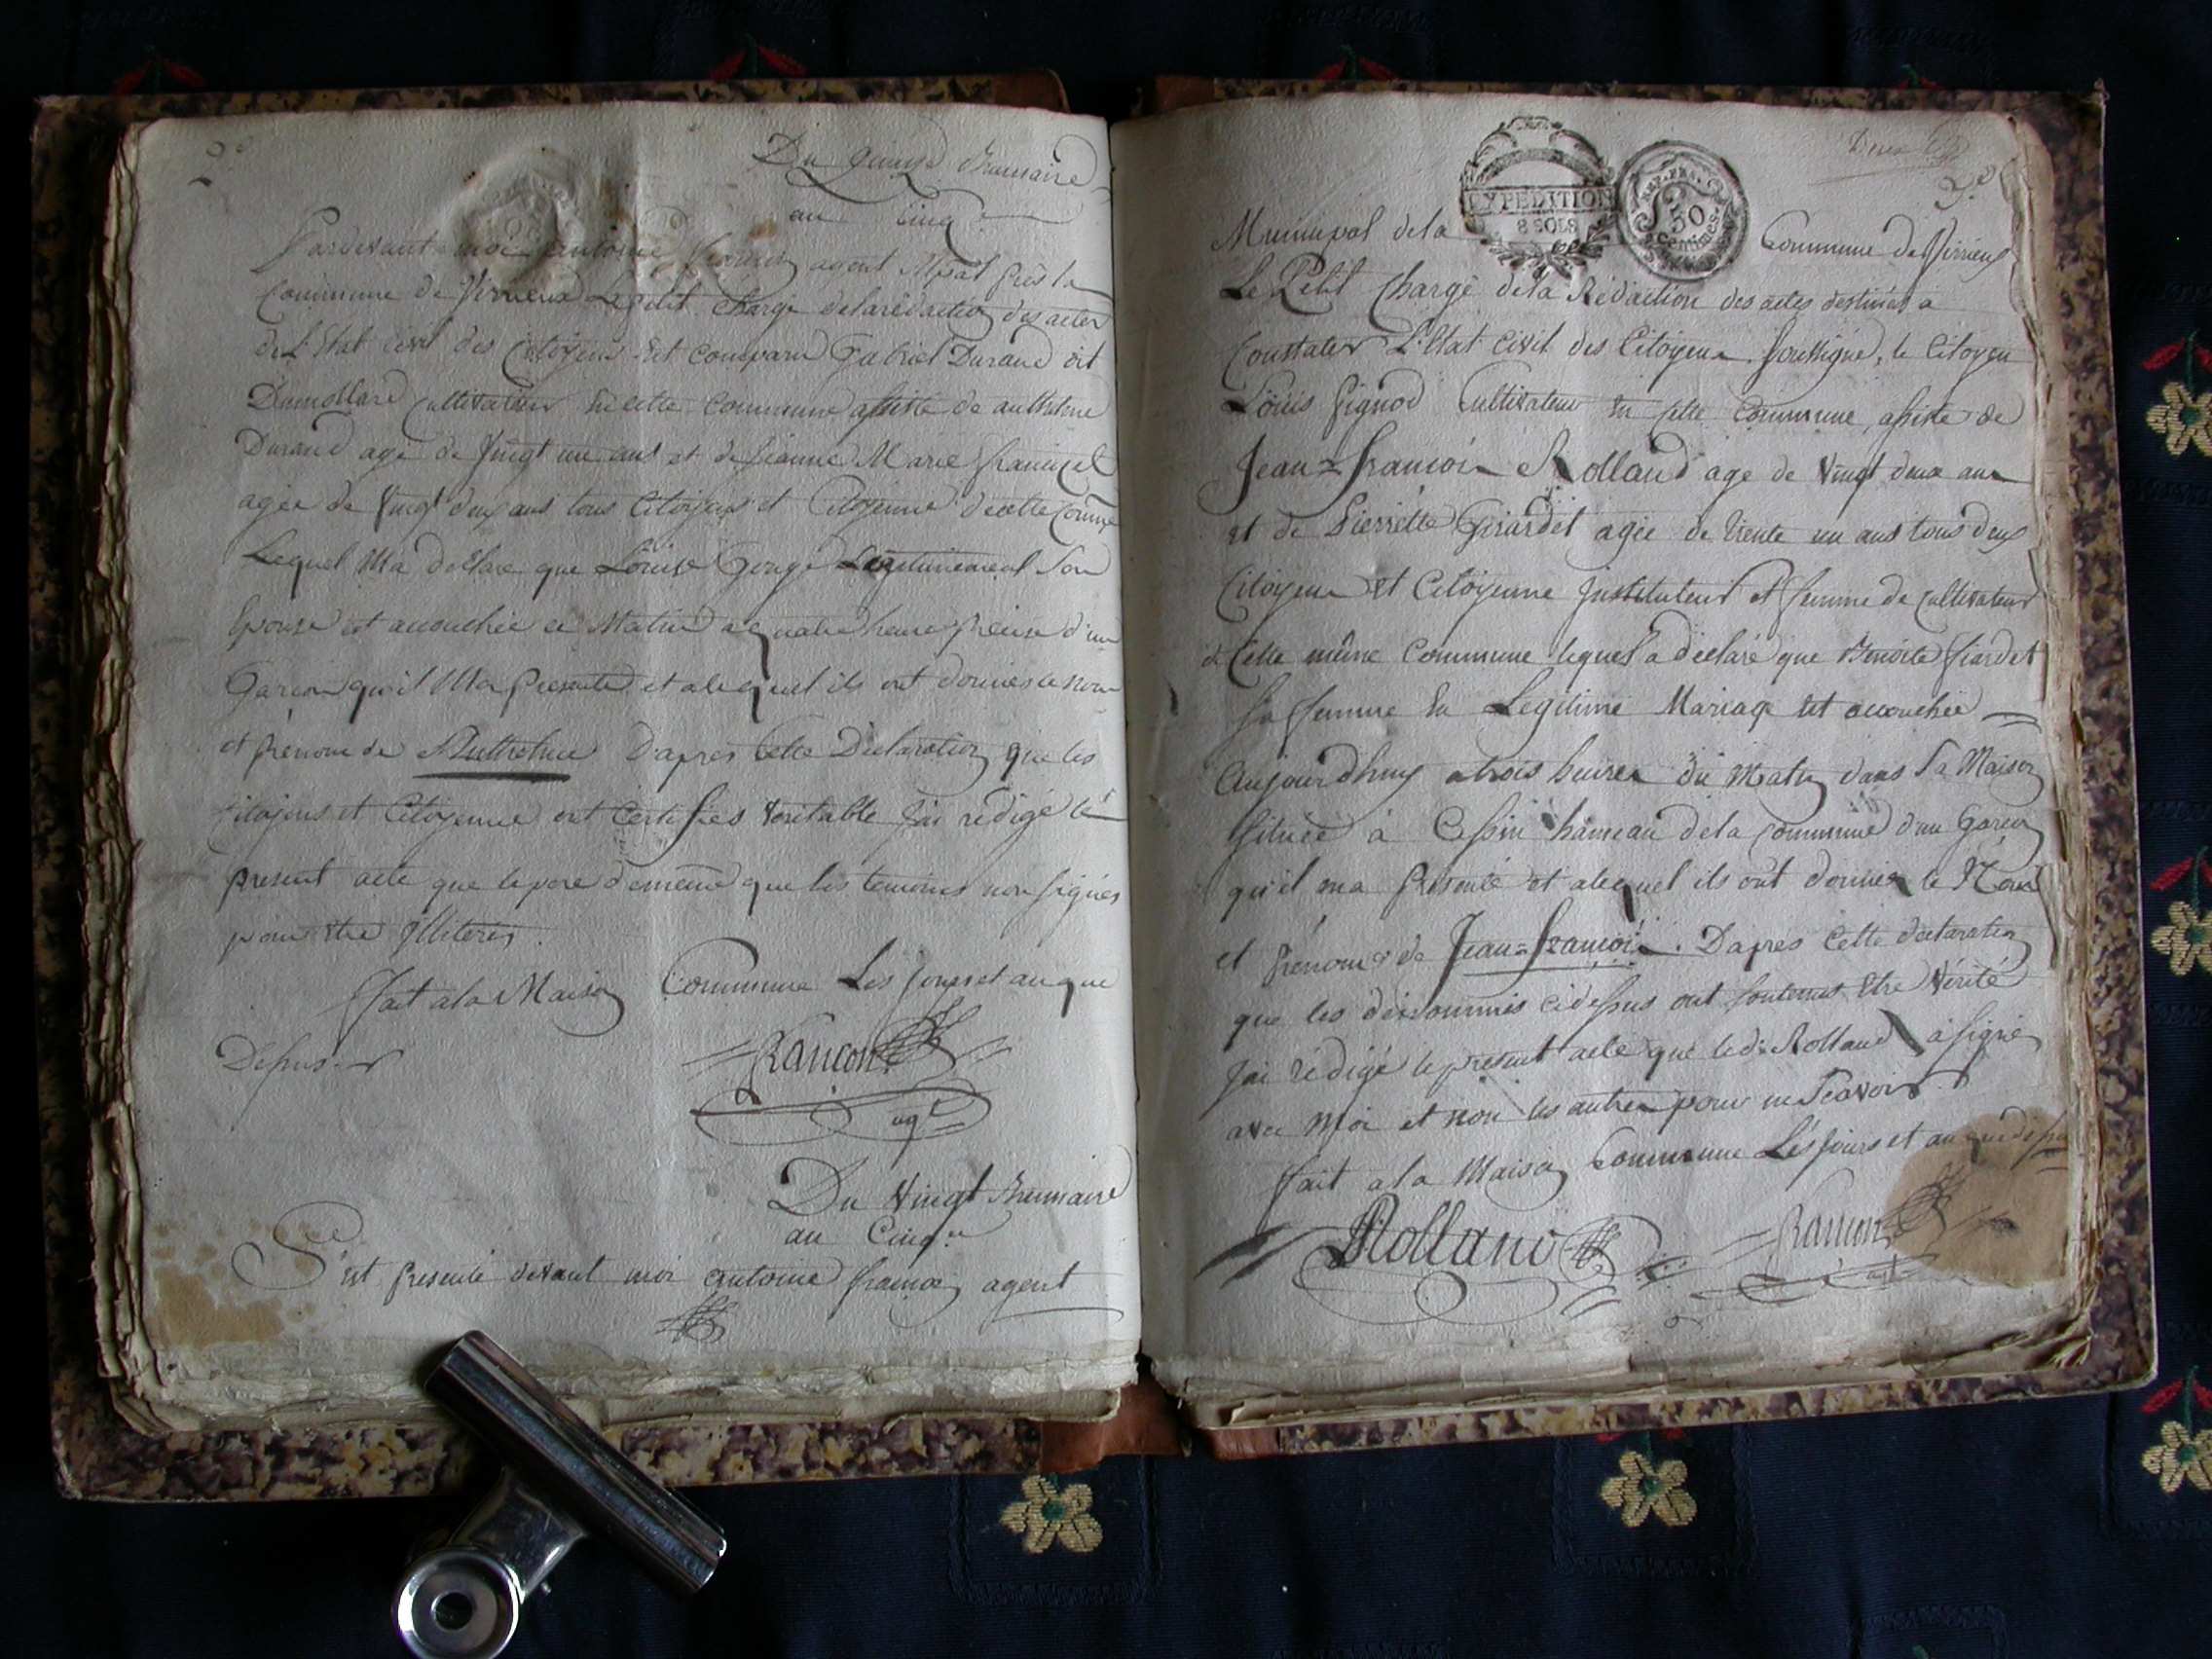 2.e
Du quinze Brumaire
an cinq
Pardevant moi antoine françois agent Mpal près la
Commune de Virieux Le petit Charge de la rédaction des actes
de L'Etat Civil des Citoyens Est comparu Gabriel Durand dit
Dumollard Cultivateur En cette Commune assisté de
Durand age de Vingt un ans et de jeanne Marie
agée de Vingt deux ans tous Citoyens et Citoyenne de cette Comme
Lequel M'a declare que Louise Légitimement Son
Epouse est accouchée ce Matin a quatre heure précise d'un
Garçon qu'il M'a presenté et alequel ils ont donnés le nom
et prénom de Authelme D'apres Cette Déclaration que les
Citoyens et Citoyenne ont Certifiés Veritable J'ai rédigé le
present acte que le pere de meme que les temoins non signés
pour être Illiterés.
fait a la Maison Commune Les jours et an que
Dessus
françois
agt
Du Vingt Brumaire
an Cinq.
S'est presenté devant moi antoine françois agent
Deux
3.e
EXPEDITION
8 SOLS
REP. FRA.
50
Centimes
Municipal de la Commune de Virieux
Le Petit Chargé de la Rédaction des actes destinés a
Constater L'Etat Civil des Citoyens Soussigné, le Citoyen
Louis Pignod Cultivateur En Cette Commune, assisté de
Jean=françois Rolland age de Vingt deux ans
et de Pierrette Girardet agée de trente un ans tous deux
Citoyen et Citoyenne Instituteur et femme de Cultivateur
de Cette même Commune lequel a déclaré que Benoite
Sa femme En Legitime Mariage Est accouchée
Aujourdhuy a trois heures du Matin dans Sa Maison
Située à Cessin hameau de la Commune d'un Garçon
qu'il m'a Présenté et alequel ils ont donnés le Nom
et prénoms de Jean=françois. D'aprés Cette declaration
que les dénommés cidessus ont soutenus Etre Vérité
J'ai rédigé le present acte que ledt. Rolland à signé
avec moi et non les autres pour ne Scavoir.
fait a la Maison Commune Les jours et an que dessus
Rolland
françois
agt